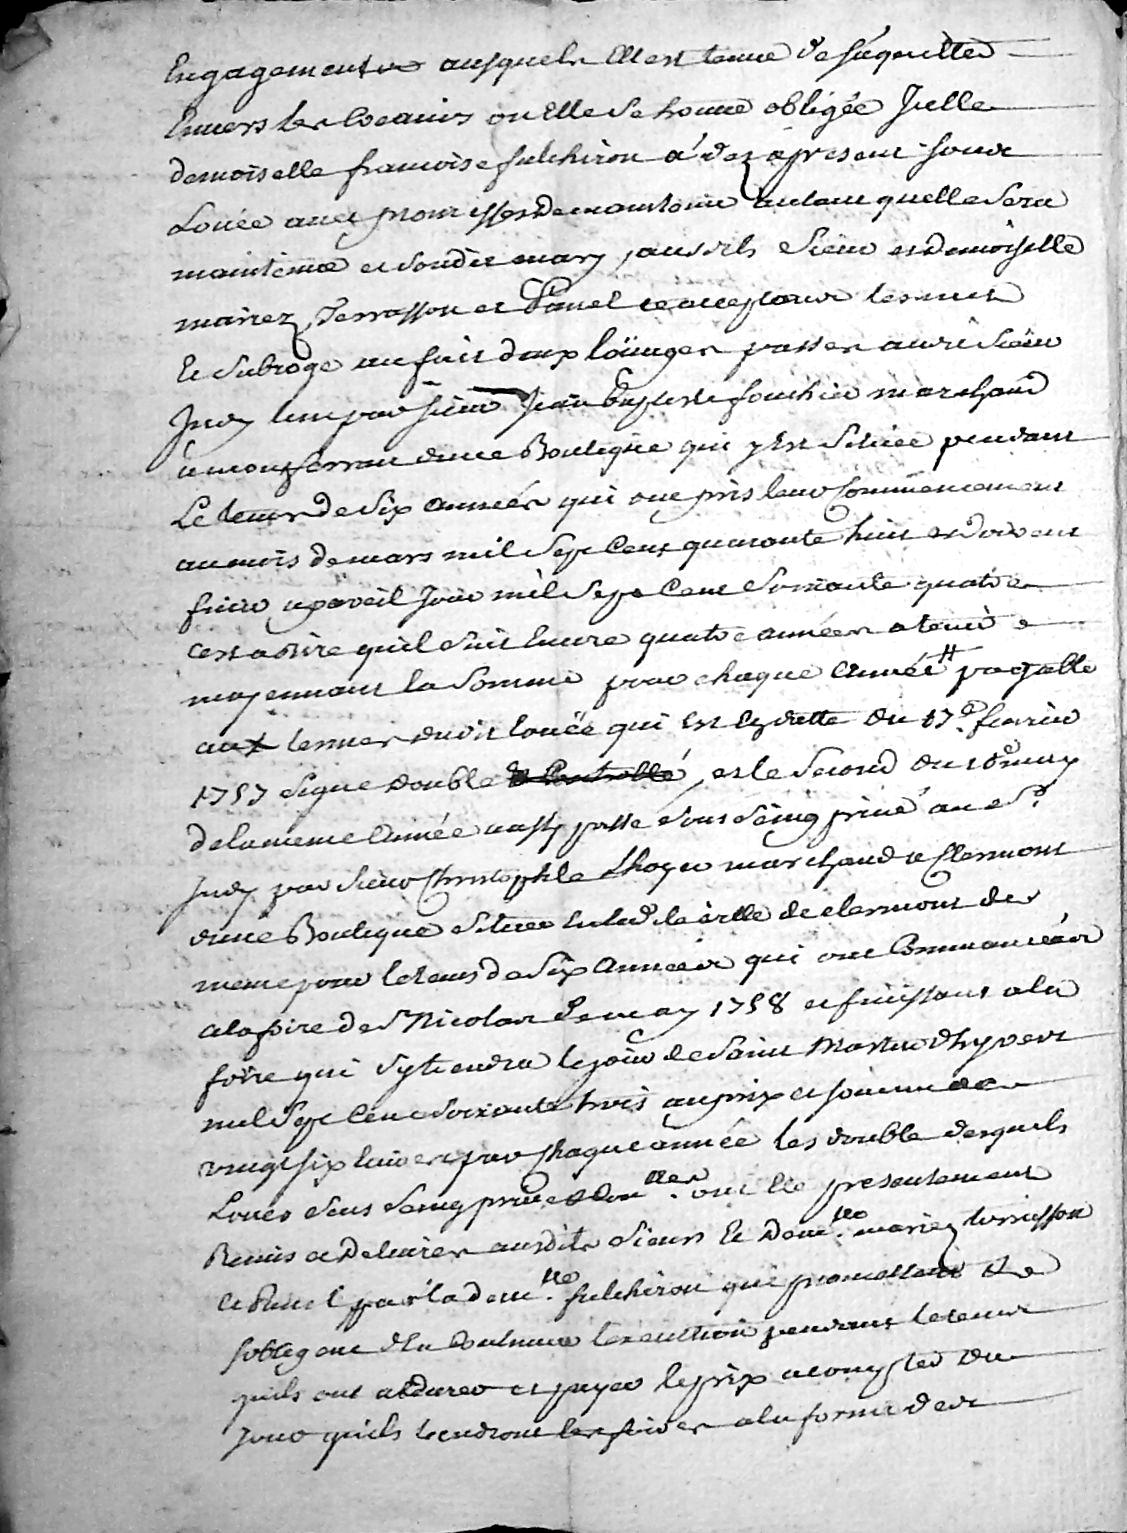 Engagements ausquels Elle est tenue de s'aquitter
Envers les locains ou Elle se trouve obligée Icelle
demoiselle francoise fulchiron a dez apresent sous
Louée avec promesses de maintenir autant quelle sera
maintenue et sondit mary, ausdits Sieur et demoiselle
mariez Terrasson et Panel ce acceptans les met
Et subroge au fait de deux loüages passes audit Sieur
Judy lun par sieur Jean Baptiste fouchier marchand
a montferran dune Boutique qui y Est Située pendant
Le tems de Six années qui ont pris leur Commencement
au mois de mars mil Sept Cent quarante huit et doivent
finir a pareil Jour mil Sept Cent Soixante quatre
cest a dire quil Suit Encore quatre années a tenir
moyennant la Somme pour chaque année # payable
aux termes dudit louée qui Est En datte du 17e fevrier
1757 signé double et Controllé, et le Second du 18e may
de la meme année aussy passé sous seing privé au Sr
Judy par Sieur Christophle Lhoyer marchand a Clermont
dune Boutique située En lad. ville de clermont de
meme pour le tems de Six années qui ont Commencées
a la foire de St Nicolas De may 1758 et finissant a la
foire qui sy tiendra le jour de Saint Martin d'hyver
mil Sept Cent Soixante trois au prix et somme de
vingt six livres par chaque année les double desquels
Loués sous seing privé ont Ete presentement
Remis et Delivrés ausdits Sieurs Et Demlle mariez terrasson
et Panel par la demlle fulchiron qui promettent et
sobligent den Continuer lexecution pendant le tems
quils ont a durer et payer le prix a compter du
Jour quils tiendront les foires a la forme des